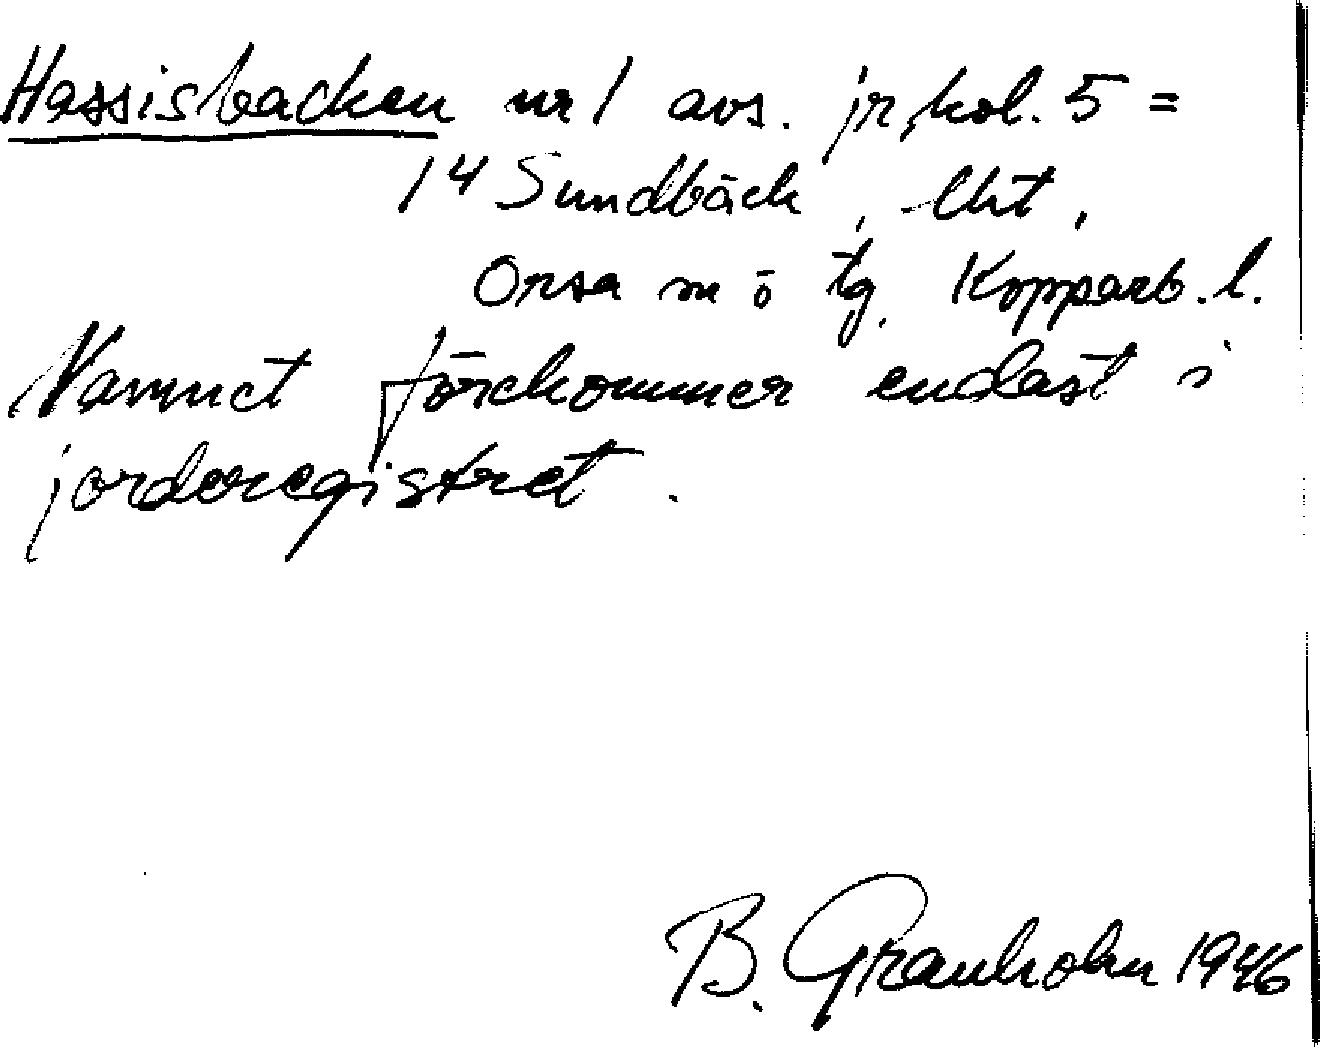 Hassisbacken nr 1 avs. jr, kol. 5 =
1⁴ Sundbäck, lht,
Orsa m ö tg, Kopparb. l.
Namnet förekommer endast i
jorderegistret.
B. Granholm 1946